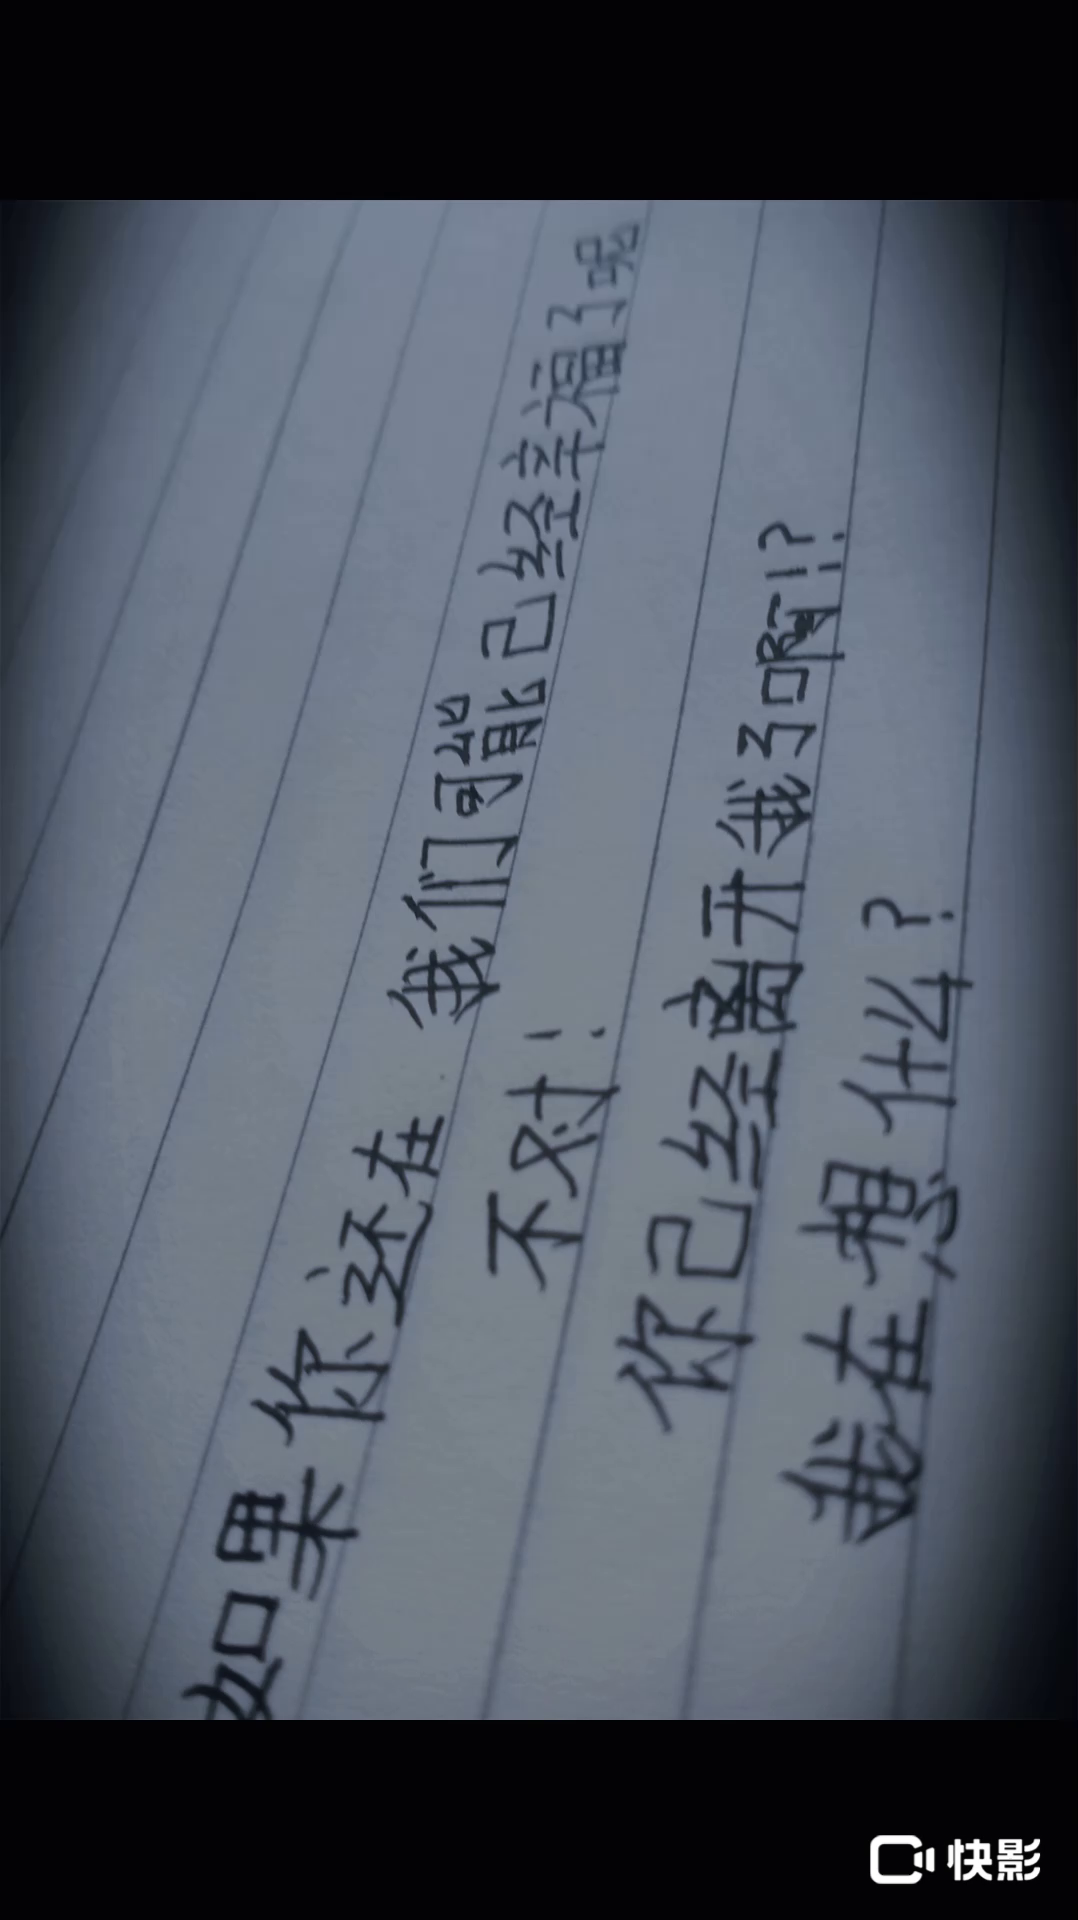 如果你还在 我们可能已经幸福了呢
不对！
你已经离开我了啊！？
我在想什么？
快影